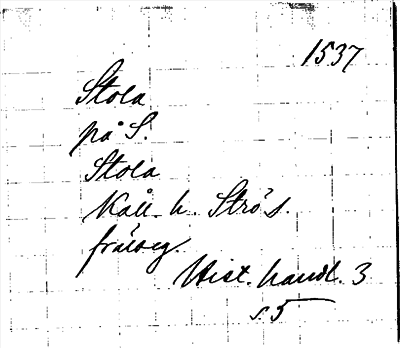 1537
Stola
på S.
Stola
Kåll. h. Strö s.
Hist. handl. 3
s 5